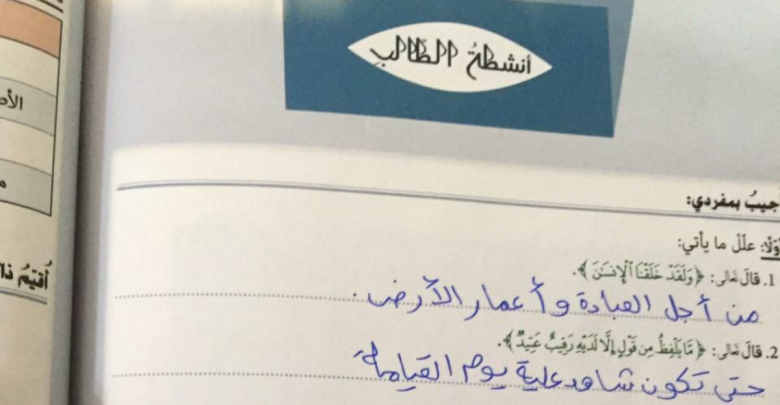 أنشطةُ الطَّالبِ
جيبُ بمفردي:
أوّلًا: علّلْ ما يأتي:
1. قالَ تعالى: ﴿ وَلَقَدْ خَلَقْنَا ٱلْإِنسَٰنَ ﴾.
من أجل العبادة وأعمار الأرض.
2. قالَ تعالى: ﴿ مَّا يَلْفِظُ مِن قَوْلٍ إِلَّا لَدَيْهِ رَقِيبٌ عَتِيدٌ ﴾.
حتى تكون شاهد علية يوم القيامة
الأ
أُقيّمُ ذا